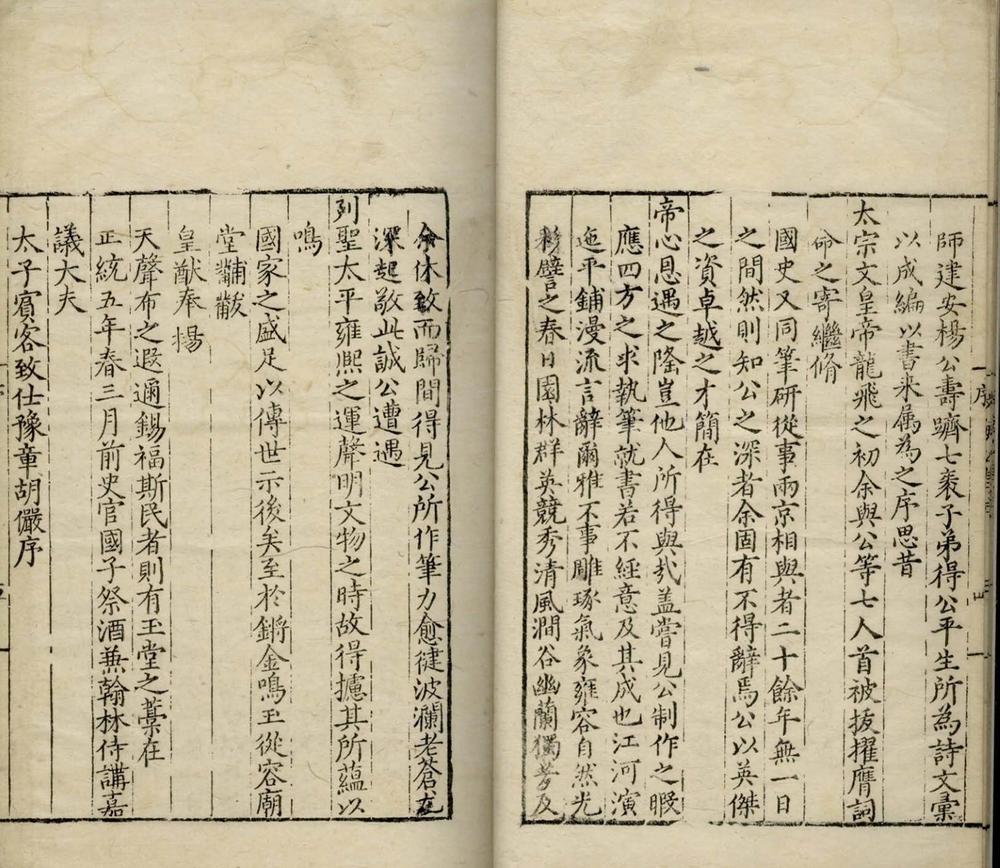 師建安楊公壽躋七袠子弟得公平生所為詩文彙
以成編以書來属為之序思昔
太宗文皇帝龍飛之初余與公等七人首被抜擢膺詞
命之寄繼脩
國史又同筆研從事兩京相與者二十餘年無一日
之間然則知公之深者余固有不得辭焉公以英傑
之資卓越之才簡在
帝心恩遇之隆豈他人所得與㢤盖嘗見公制作之暇
應四方之求執筆就書若不經意及其成也江河演
迤平鋪漫流言辭爾雅不事雕琢氣象雍容自然光
彩譬之春日園林群英競秀清風澗谷幽蘭獨芳及
休致而歸間得見公所作筆力愈健波瀾老蒼尤
深起敬此誠公遭遇
列聖太平雍熙之運聲明文物之時故得攄其所蘊以
鳴
國家之盛足以傳世示後矣至於鏘金鳴玉從容廟
堂黼黻
皇猷奉揚
天聲布之遐邇錫福斯民者則有玉堂之藁在
正統五年春三月前史官國子祭酒兼翰林侍講嘉
議大夫
太子賓客致仕豫章胡儼序
序